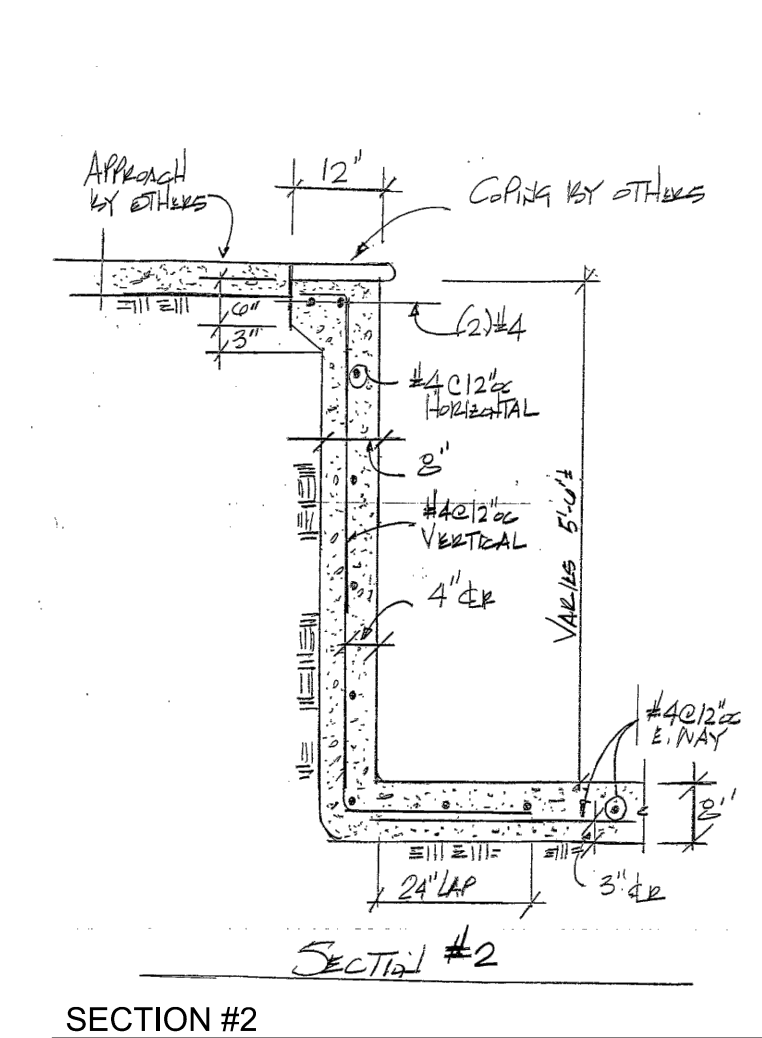 APPROACH
BY OTHERS
12"
COPING BY OTHERS
6"
3"
(2)#4
#4@12"oc
HORIZONTAL
8"
#4@12"oc
VERTICAL
4" CLR
VARIES 5'-6"±
#4@12"oc
E. WAY
8"
24" LAP
3" CLR
SECTION #2
SECTION #2